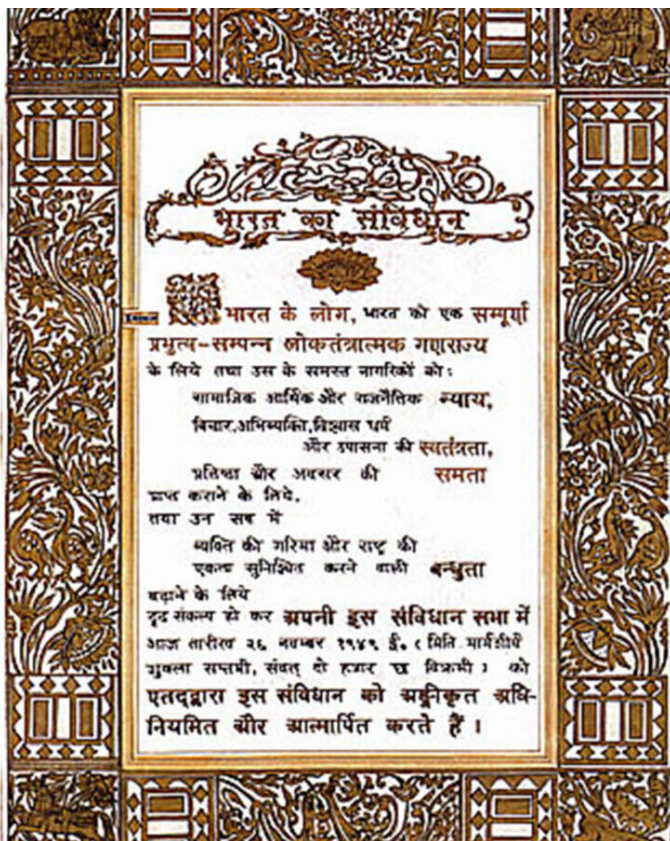 भारत का संविधान
भारत के लोग, भारत को एक सम्पूर्ण
प्रभुत्व-सम्पन्न लोकतंत्रात्मक गणराज्य
के लिये तथा उस के समस्त नागरिकों को:
सामाजिक आर्थिक और राजनैतिक न्याय,
विचार,अभिव्यक्ति,विश्वास धर्म
और उपासना की स्वतंत्रता,
प्रतिष्ठा और अवसर की समता
प्राप्त कराने के लिये,
तथा उन सब में
व्यक्ति की गरिमा और राष्ट्र की
एकता सुनिश्चित करने वाली बन्धुता
बढ़ाने के लिये
दृढ़ संकल्प हो कर अपनी इस संविधान सभा में
आज तारीख २६ नवम्बर १९४९ ई॰ ( मिति मार्गशीर्ष
शुक्ला सप्तमी, संवत् दो हजार छ विक्रमी ) को
एतद्द्वारा इस संविधान को अङ्गीकृत अधि-
नियमित और आत्मार्पित करते हैं ।